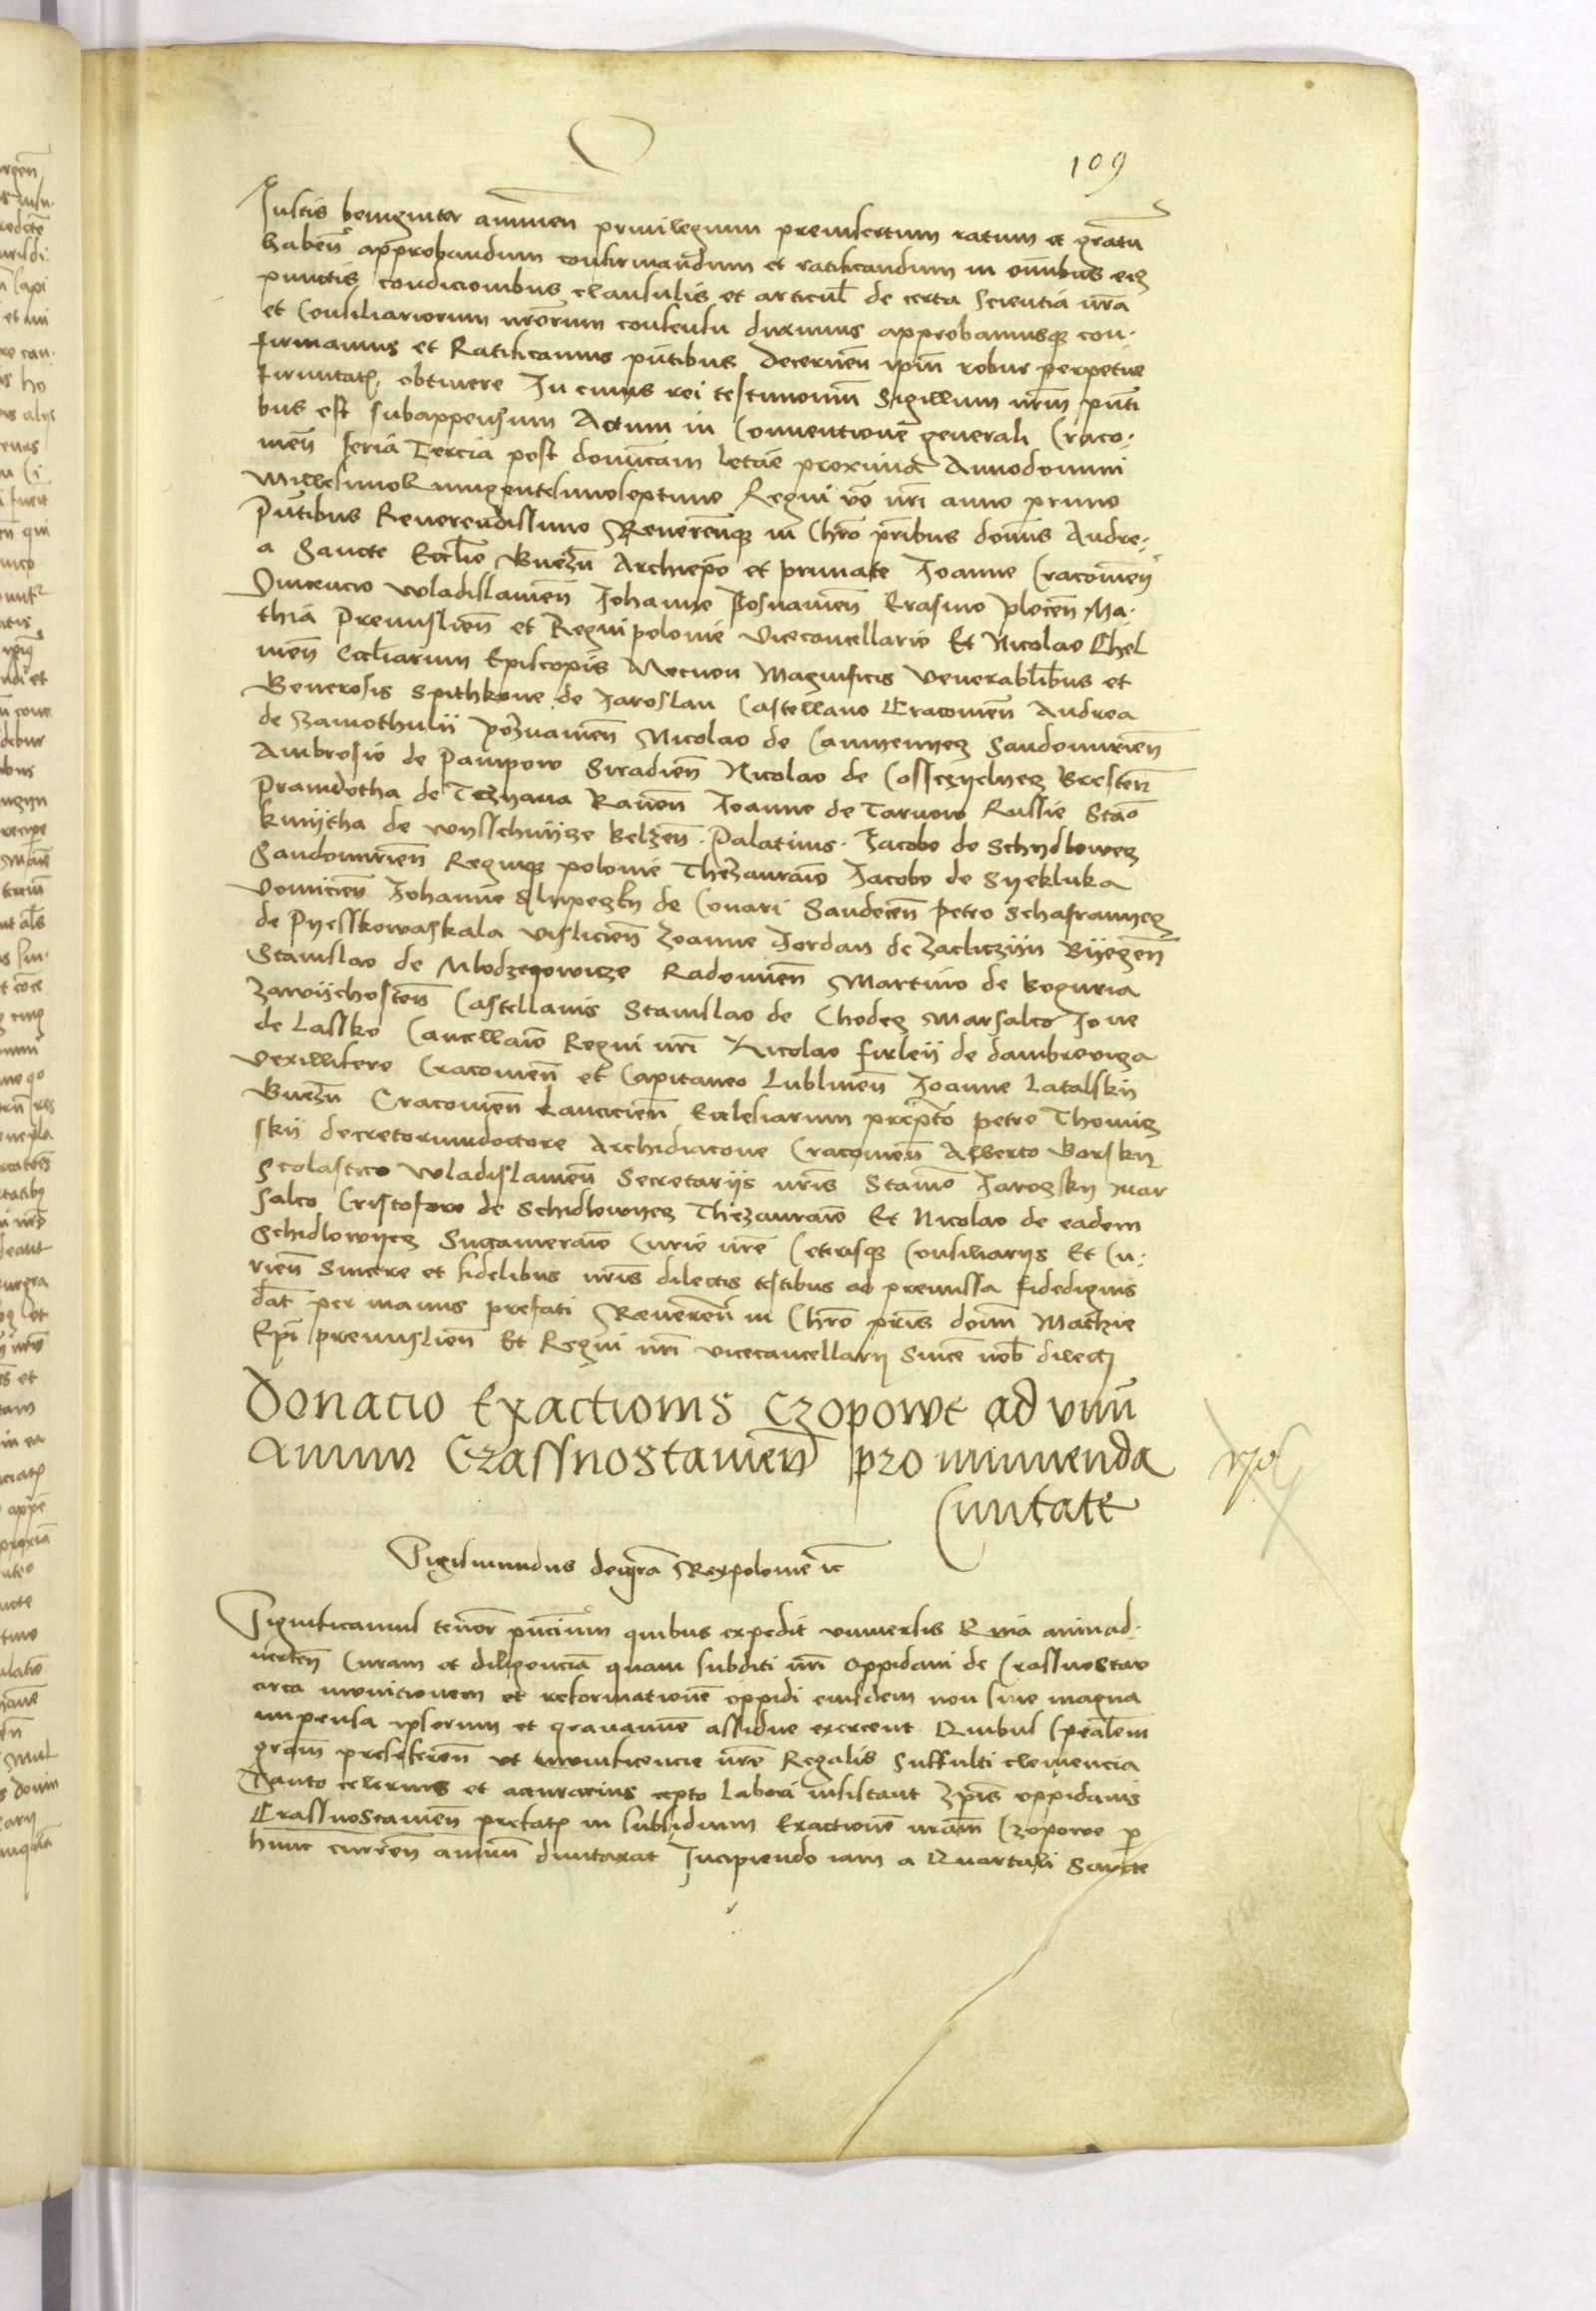 109
Iustis benigniter annuen privilegium preinsertum ratum et gratu
haben approbandum confirmandum et ratificandum in omnibus eig
punctis condicionibus clausulis et articul de certa scientia nra
et Consiliariorum nrorum consensu duximus approbamusq con-
firmamus et Ratificamus pntibus Decernen ipm robur perpetue
firmitatis obtinere In cuius rei testimonium Sigillum nrm pnti
bus est subappensum Actum in Conventione generali Craco-
vien feria Tercia post dominicam letare proxima Annodomini
MillesimoQuingentesimoseptimo Regni vo nri anno primo
Pntibus Reverendissimo Reverendisq in Chro pribus domis Andre-
a Sancte Ecclie Gnezn Archiepo et primate Joanne Cracovien
Vincencio Wladislavien Johanne Posnanien Erasmo plocen Ma-
thia Premislien et Regni polonie Vicecancellario Et Nicolao Chel
men Eccliarum Episcopis Necnon Magnificis Venerablibus et
Generosis Spithkone de Jaroslau Castellano Cracovien Andrea
de Szamothuli poznanien Nicolao de Camyenyecz Sandomirien
Ambrosio de Pampow Siradien Nicolao de Cosscyelyecz Bresten
Prandotha de Trczyana Raven Joanne de Tarnow Russie Stao
kmytha de wysschnycze Belzen Palatinis Jacobo de Schydlowecz
Sandomirien Regniq polonie Thezaurario Jacobo de Syekluka
Voinicien Johanne Slupeczky de Conari Sandecen Petro Schafranyecz
de Pyesskowaskala vislicien Joanne Jordan de Zacliczyn Byegen
Stanislao de Mlodzeyowicze Radomien Martino de Boguria
Zawychosten Castellanis Stanislao de Chodecz Marsalco Jone
de Lassko Cancellario Regni nri Nicolao firley de dambrowicza
vexillifero Cracovien et Capitaneo Lublinen Joanne Latalsky
Gnezn Cracovien Lancicien Ecclesiarum preposito petro Thomicz
sky decretorumdoctore Archidiacono Cracovien Alberto Gorsky
Scolastico Wladislavien Secretariis nris Stanio Jaroczky Mar
salco Cristoforo de Schidlowyecz Thezaurario Et Nicolao de eadem
Schidlowyecz Succamerario Curie nre Ceterisq Consiliariis Et Cu-
rien Sincere et fidelibus nris dilectis testibus ad premissa fidedignis
dat per manus prefati Reveren in Chro pris domi Mathie
Epi premislien Et Regni nri vicecancellarii Since nob dilecti
Donacio Exactionis Czopowe ad vnu
annum Crassnostavien pro munienda
Civitate
Sigismundus deigra Rexpolonie etc
Significamus tenore pncium quibus expedit universis Quia animad-
verten Curam et diligenciam quam subditi nri oppidani de Crassnostaw
circa municionem et reformatione oppidi eiusdem non sine magna
impensa ipsorum et gravamine assidue exercent Quibus spealem
gram prefeferen ut munificencie nre Regalis suffulti clemencia
Tanto celerius et accuracius cepto labori insistant Ipis oppidanis
Crassnostavien prefatis in subsidium Exactione nram Czopowe p
hunc curren annum duntaxat Incipiendo iam a Quartali Sancte